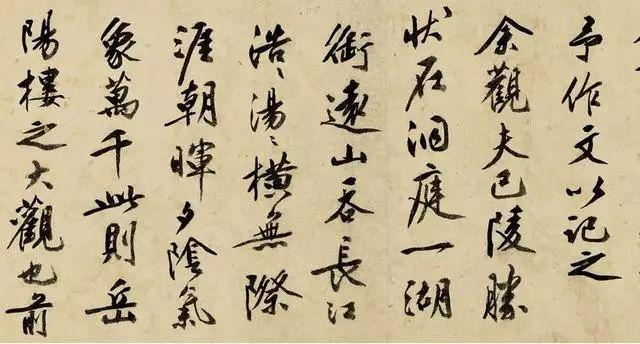 予作文以記之
余觀夫巴陵勝
状在洞庭一湖
銜遠山吞長江
浩〻湯〻橫無際
涯朝暉夕陰氣
象萬千此則岳
陽樓之大觀也前